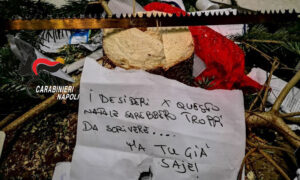 CARABINIERI
NAPOLI
I DESIDERI X QUESTO
NATALE SAREBBERO TROPPI
DA SCRIVERE....
MA TU GIÀ
SAJE!